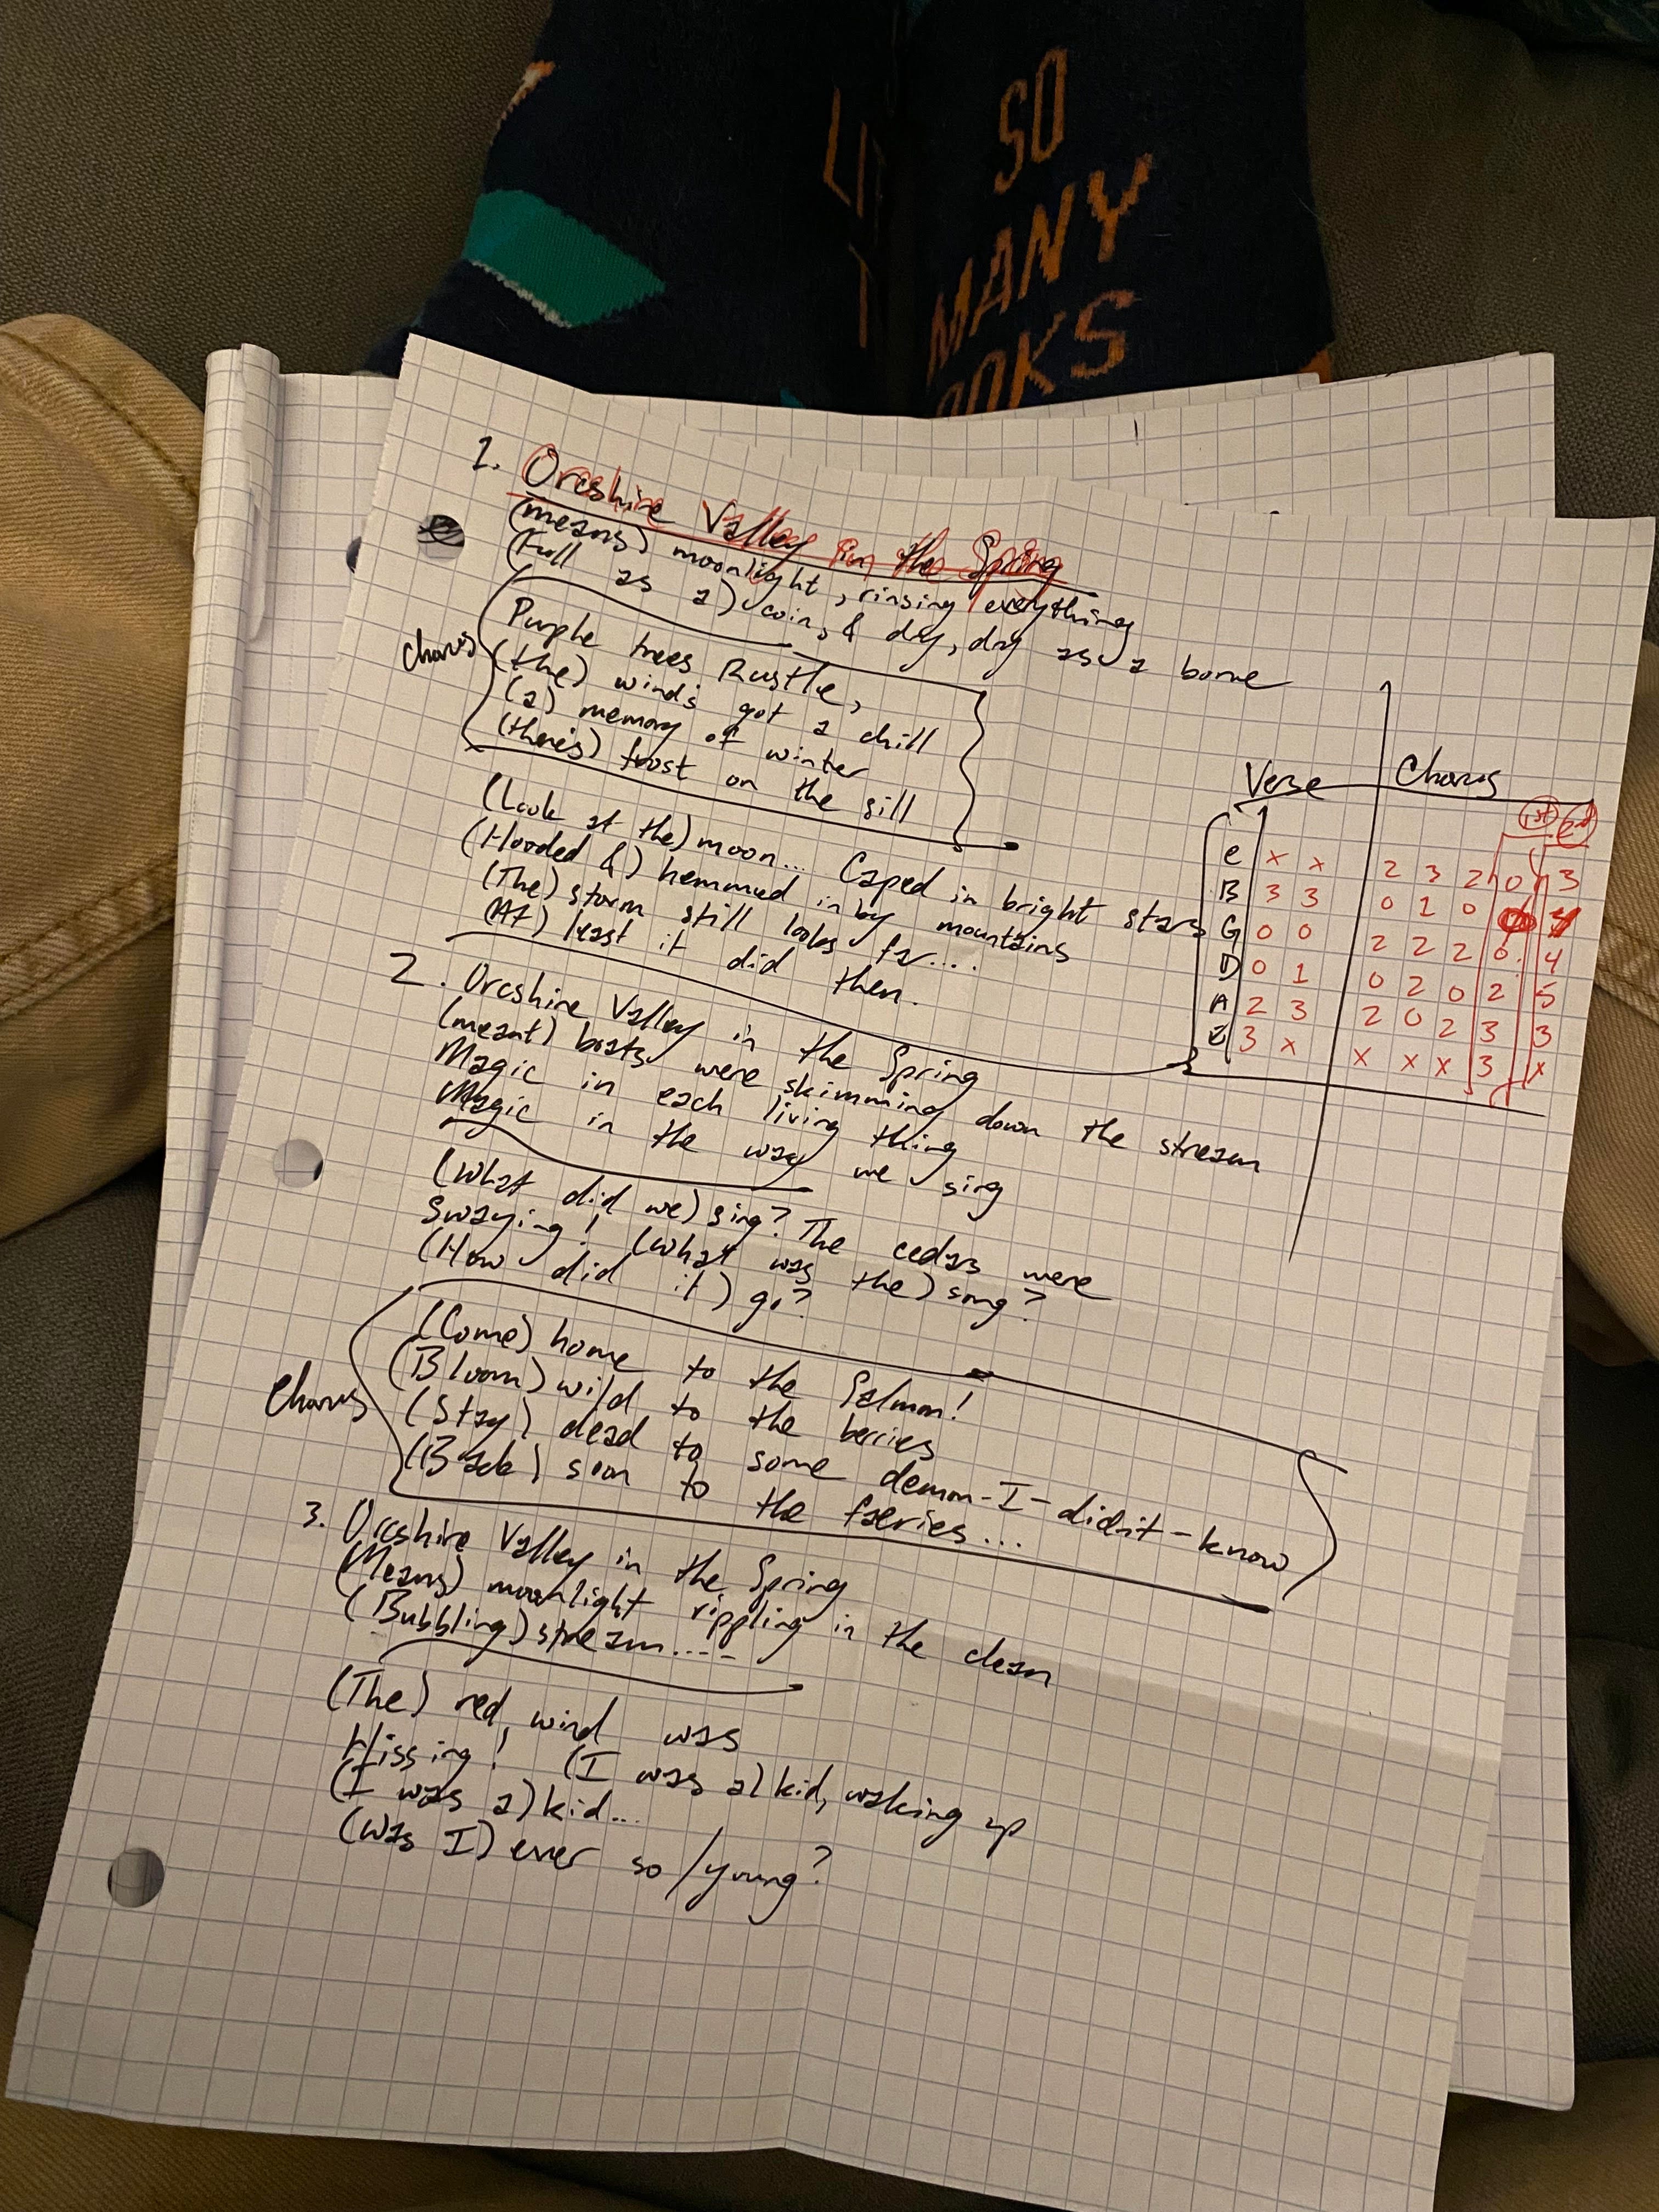 LIT
SO
MANY
OOKS
1. Orcshire Valley in the Spring
(means) moonlight, rinsing everything
(Full as a) coin, & dry, dry as a bone
chorus
Purple trees Rustle,
(the) wind's got a chill
(a) memory of winter
(there's) frost on the sill
(Look at the) moon... Caped in bright stars
(Hooded &) hemmed in by mountains
(The) storm still looks far....
(At) least it did then.
2. Orcshire Valley in the Spring
(meant) boats were skimming down the stream
Magic in each living thing
Magic in the way we sing
(What did we) sing? The cedars were
Swaying! (What was the) song?
(How did it) go?
Chorus
(Come) home to the Salmon!
(Bloom) wild to the berries
(Stay) dead to some demon-I-didn't-know
(Back) soon to the faeries...
3. Orcshire Valley in the Spring
(Means) moonlight rippling in the clean
(Bubbling) stream....
(The) red, wind was
Hissing! (I was a) kid, waking up
(I was a) kid...
(Was I) ever so/young?
Verse Chorus
1st 2nd
e x x 2 3 2 0 3
B 3 3 0 1 0
G 0 0 2 2 2 0 4
D 0 1 0 2 0 2 5
A 2 3 2 0 2 3 3
E 3 x x x x 3 x